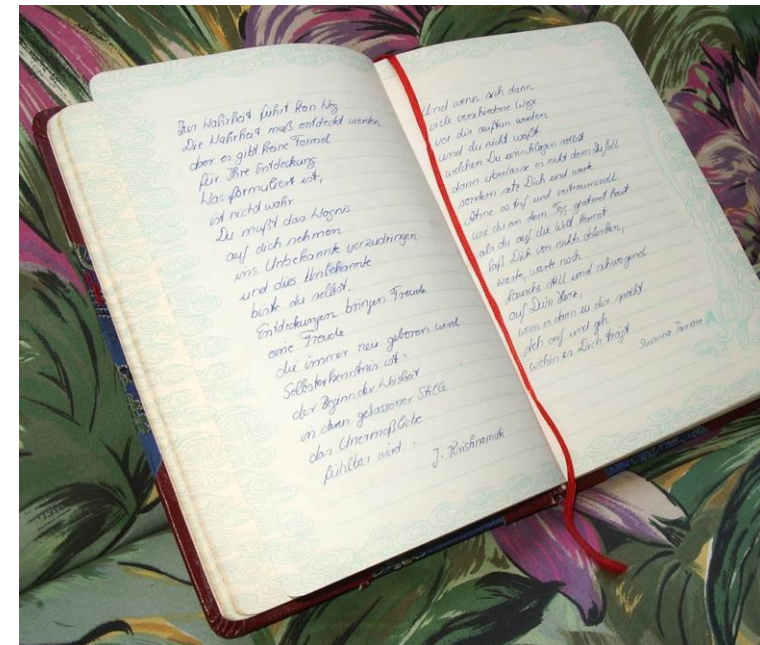 Zur Wahrheit führt kein Weg
Die Wahrheit muß entdeckt werden
aber es gibt keine Formel
für Ihre Entdeckung
Was formuliert ist,
ist nicht wahr
Du mußt das Wagnis
auf dich nehmen
ins Unbekannte vorzudringen
und dies Unbekannte
bist du selbst.
Entdeckungen bringen Freude
eine Freude
die immer neu geboren wird
Selbsterkenntnis ist
der Beginn der Weisheit
in deren gelassener Stille
das Unermeßliche
fühlbar wird.
J. Krishnamurti
Und wenn sich dann
viele verschiedene Wege
vor dir auftun werden
und du nicht weißt
welchen Du einschlagen sollst
dann überlasse es nicht dem Zufall
sondern setz Dich und warte
Atme so tief und vertrauensvoll
wie du an dem Tag geatmet hast
als du auf die Welt kamst
laß Dich von nichts ablenken,
warte, warte noch
lausche still und schweigend
auf Dein Herz,
wenn es dann zu dir spricht
steh auf und geh
wohin es Dich trägt
Susanna